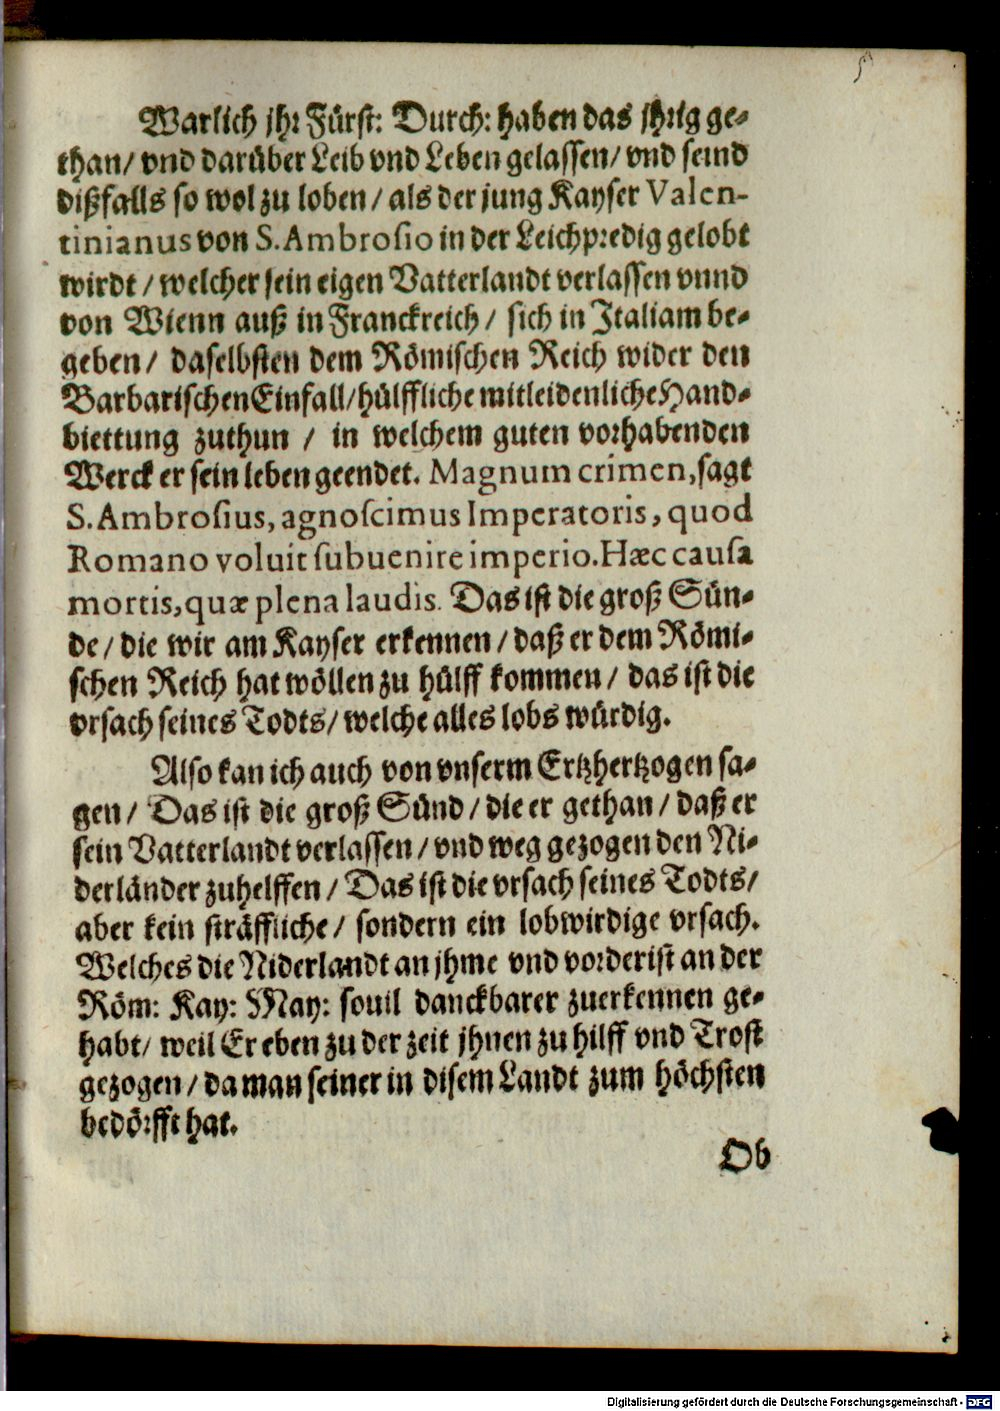 Warlich jhr Fürst: Durch: haben das jhrig ge-
than/ vnd darüber Leib vnd Leben gelassen/ vnd seind
dißfalls so wol zu loben/ als der jung Kayser Valen-
tinianus von S. Ambrosio in der Leichpredig gelobt
wirdt/ welcher sein eigen Vatterlandt verlassen vnnd
von Wienn auß in Franckreich/ sich in Italiam be-
geben/ daselbsten dem Römischen Reich wider den
Barbarischen Einfall/ hülffliche mitleidenliche Hand-
biettung zuthun/ in welchem guten vorhabenden
Werck er sein leben geendet. Magnum crimen, sagt
S. Ambrosius, agnoscimus Imperatoris, quod
Romano voluit subuenire imperio. Hæc causa
mortis, quæ plena laudis. Das ist die groß Sün-
de/ die wir am Kayser erkennen/ daß er dem Römi-
schen Reich hat wöllen zu hülff kommen/ das ist die
vrsach seines Todts/ welche alles lobs würdig.
Also kan ich auch von vnserm Ertzhertzogen sa-
gen/ Das ist die groß Sünd/ die er gethan/ daß er
sein Vatterlandt verlassen/ vnd weg gezogen den Ni-
derländer zuhelffen/ Das ist die vrsach seines Todts/
aber kein sträffliche/ sondern ein lobwirdige vrsach.
Welches die Niderlandt an jhme vnd vorderist an der
Röm: Kay: May: souil danckbarer zuerkennen ge-
habt/ weil Er eben zu der zeit jhnen zu hilff vnd Trost
gezogen/ da man seiner in disem Landt zum höchsten
bedörfft hat.
Ob
Digitalisierung gefördert durch die Deutsche Forschungsgemeinschaft - DFG